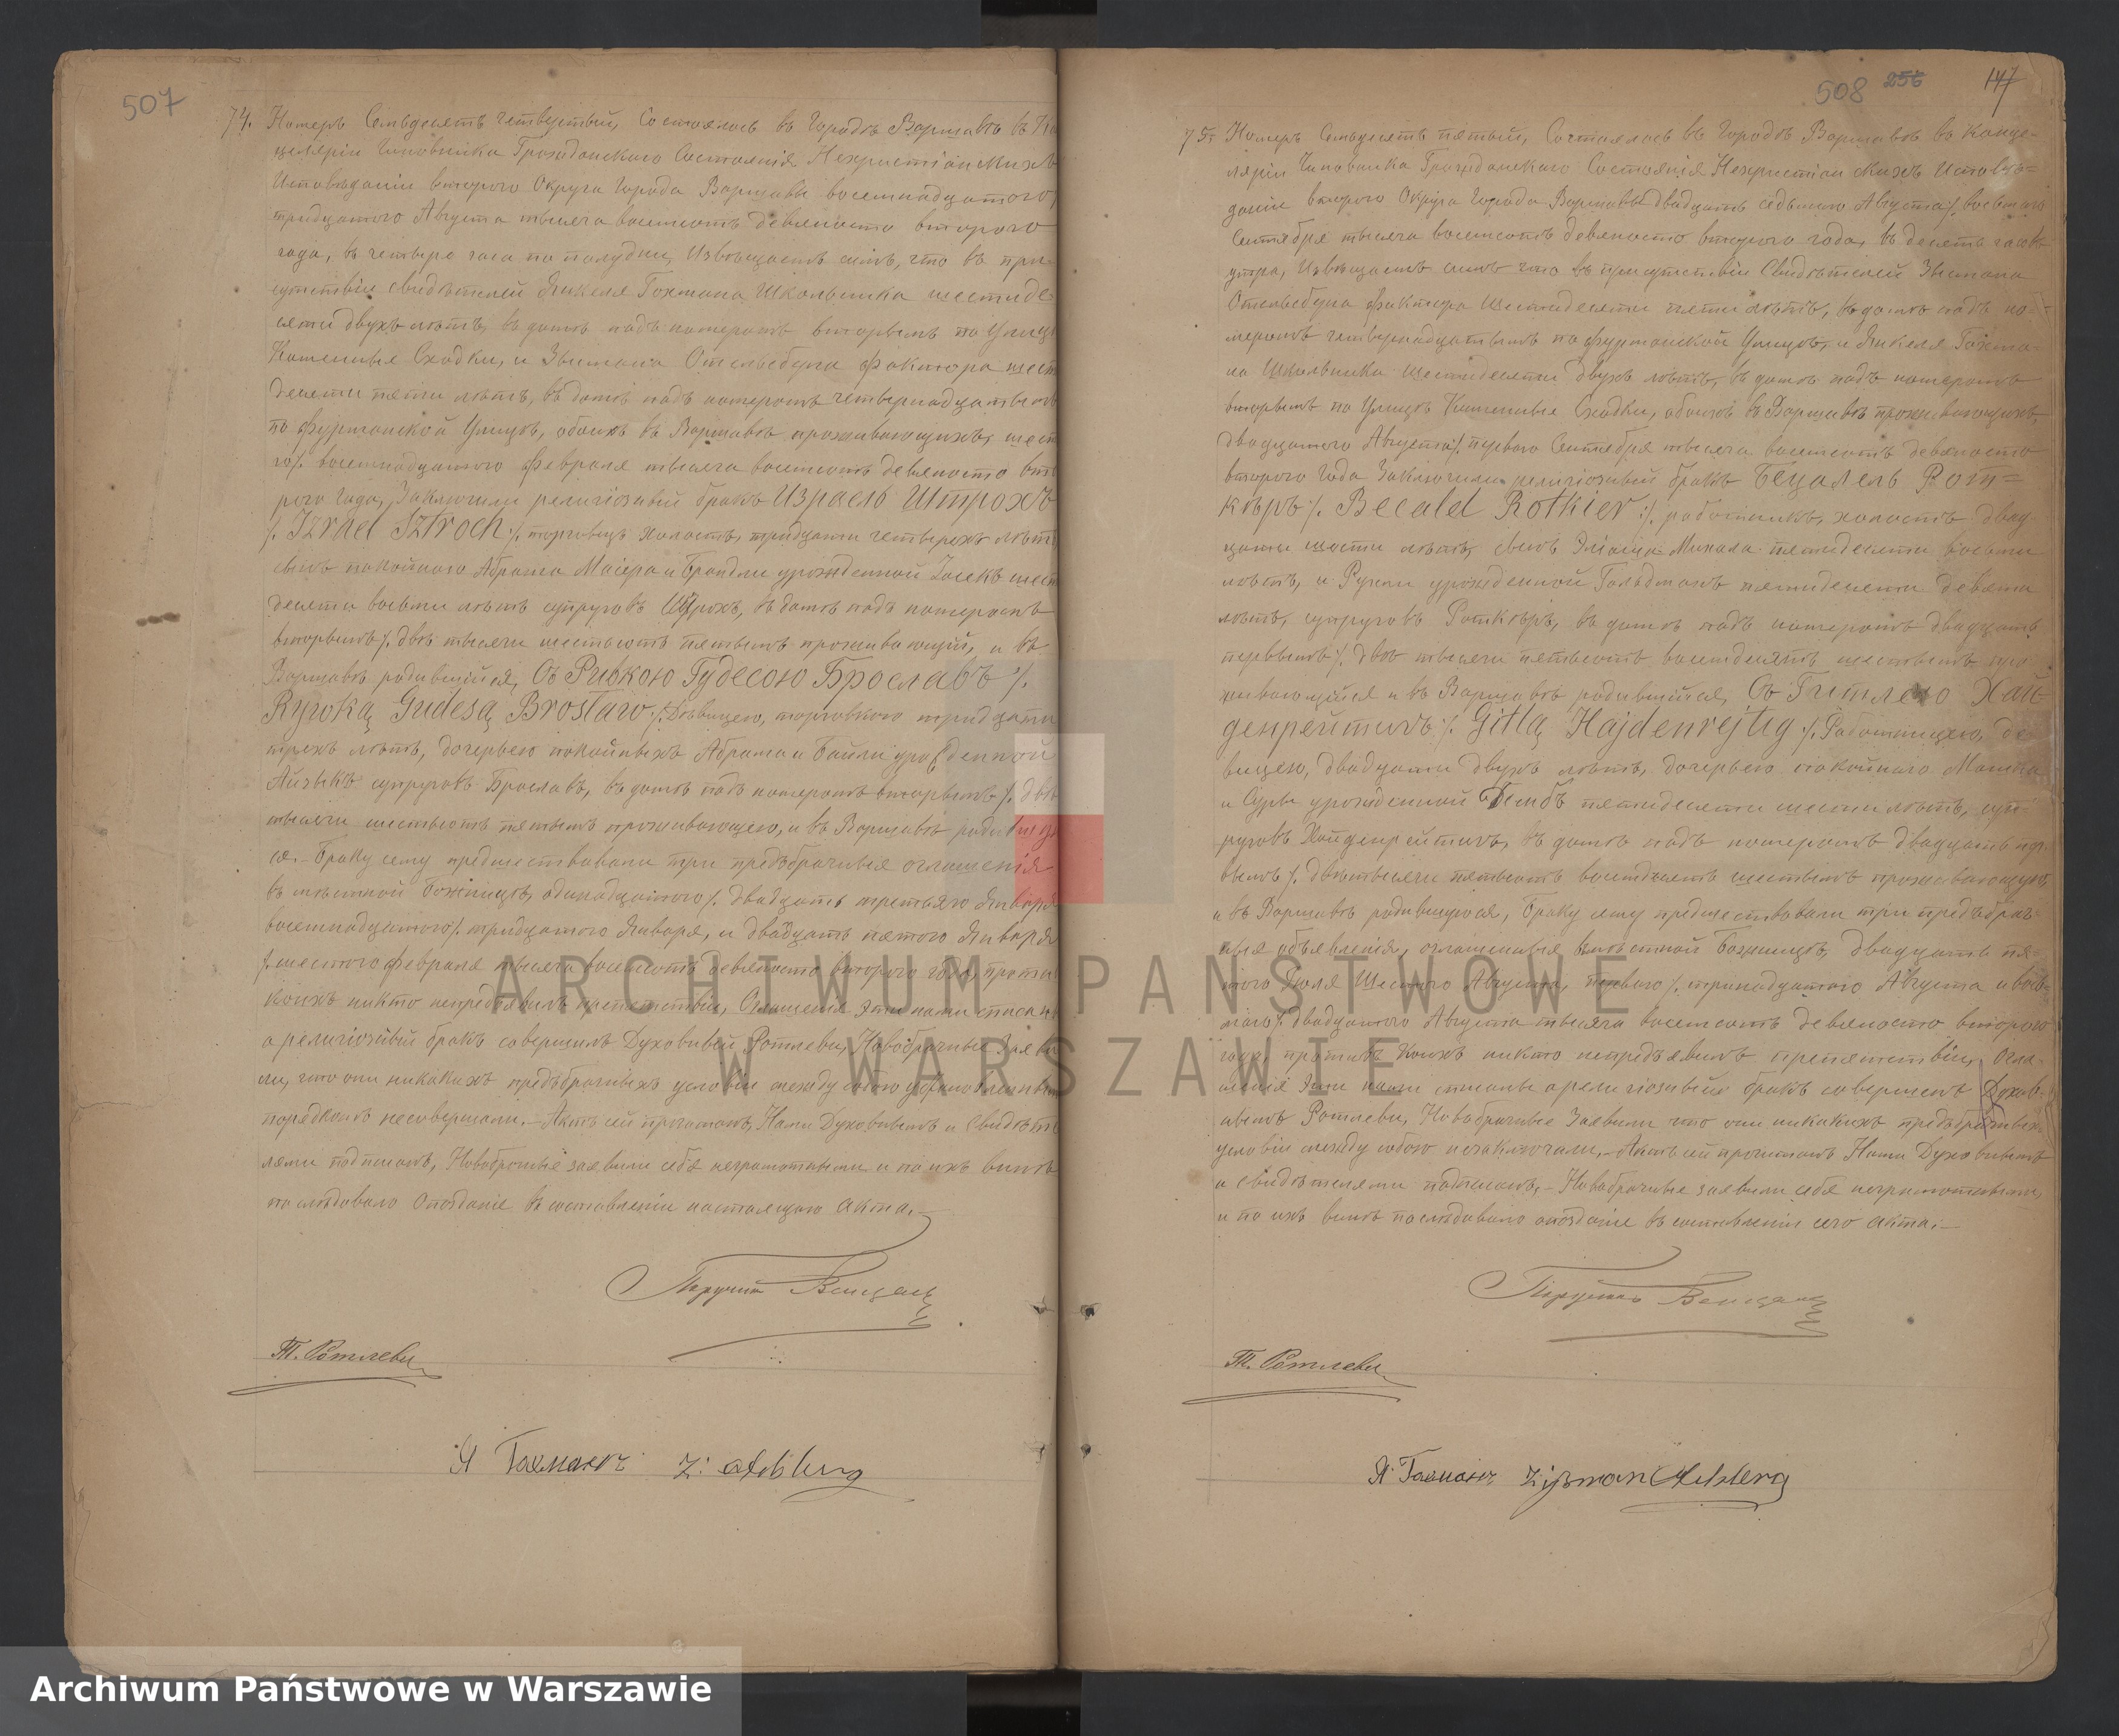 507
74. Номеръ Семьдесятъ четвертый, Состоялось въ Городѣ Варшавѣ въ Кан
целяріи Чиновника Гражданского Состоянія Нехристіанскихъ
Исповѣданіи втораго Округа Города Варшавы восемнадцатого
тридцатого Августа тысяча восемсотъ девяносто второго
года, въ четыре часа по полудни, Извѣщаемъ симъ, что въ при-
сутствіи свидѣтелей Янкеля Гохмана Школьника шестиде
сяти двухъ лѣтъ, въ домѣ подъ номеромъ вторымъ по Улицѣ
Каменные Сходки, и Зысмана Отельсбурга фактора шест
десяти пяти лѣтъ, въ домѣ подъ номеромъ четырнадцатымъ
по Фурманской Улицѣ, обоихъ въ Варшавѣ проживающихъ, шест
го/. восемнадцатого Февраля тысяча восемсотъ девяносто вто
рого Года, Заключили религіозный бракъ Израель Штрохъ
/. Izrael Sztroch ./. торговецъ холостъ, тридцати четырехъ лѣтъ
сынъ покойного Абрама Маіера и Брандли урожденной Іосекъ шест
десяти восьми лѣтъ супруговъ Штрохъ, въ домѣ подъ номеромъ
вторымъ /. двѣ тысячи шестьсотъ пятымъ проживающій, и въ
Варшавѣ родившійся, Съ Ривкою Гудесою Брославъ /.
Rywką Gudesą Brosław ./. Дѣвицею, торговкою тридцати
трехъ лѣтъ, дочерью покойныхъ Абрама и Байли урожденной
Айзыкъ супруговъ Брославъ, въ домѣ подъ номеромъ вторымъ /. двѣ
тысячи шестьсотъ пятымъ проживающею, и въ Варшавѣ родившую
ся. Браку сему предшествовали три предъбрачныя оглашенія
въ мѣстной Божницѣ, одинадцатого /. двадцать третьяго Января
восемнадцатого /. тридцатого Января, и двадцать пятого Января
/. шестого Февраля тысяча восемсотъ девяносто второго года, против
коихъ никто непредъявилъ препятствіи, Оглашенія Эти нами списаны
а религіозный бракъ совершилъ Духовный Ротлеви, Новобрачные Заяви
ли, что они никакихъ предъбрачныхъ условіи между собою установленным
порядкомъ несовершали. Актъ сей прочитанъ, Нами Духовнымъ и Свидѣте
лями подписанъ, Новобрачные заявили себя неграмотными и по ихъ винѣ
послѣдовало Опозданіе въ составленіи настоящаго акта.
Т. Ротлеви
Я Гохманъ
508 256 147
75. Номеръ Семьдесятъ пятый, Состоялось въ Городѣ Варшавѣ въ Канце-
ляріи Чиновника Гражданского Состоянія Нехристіанскихъ Исповѣ=
даніи второго Округа Города Варшавы двадцать седьмого Августа/. восьмого
Сентября тысяча восемсотъ девяносто второго года, въ десять часовъ
утра, Извѣщаемъ симъ что въ присутствіи Свидѣтелей Зысмана
Отельсбурга Фактора Шестидесяти пяти лѣтъ, въ домѣ подъ но-
меромъ четырнадцатымъ по Фурманской Улицѣ, и Янкеля Гохма-
на Школьника шестидесяти двухъ лѣтъ, въ домѣ подъ номеромъ
вторымъ по Улицѣ Каменные Сходки, обоихъ въ Варшавѣ проживающихъ,
двадцатого Августа/. первого Сентября тысяча восемсотъ девяносто
второго Года Заключили религіозный бракъ Бецалель Рот=
кѣръ /. Becalel Rotkier :/. работникъ, холостъ двад
цати шести лѣтъ, сынъ Эліаша Михала пятидесяти восьми
лѣтъ, и Рухли урожденной Гольдманъ пятидесяти девяти
лѣтъ, супруговъ Роткѣръ, въ домѣ подъ номеромъ двадцать
первымъ /. двѣ тысячи пятьсотъ восемдесятъ шестымъ про
живающійся и въ Варшавѣ родившійся, Съ Гитлею Хай-
денрейтигъ /. Gitlą Hajdenrejtig ./. Работницею, дѣ
вицею, двадцати двухъ лѣтъ, дочерью покойного
и Суры урожденной пятидесяти шести лѣтъ, суп
руговъ Хайденрейтигъ, въ домѣ подъ номеромъ двадцать пер
вымъ /. двѣ тысячи пятьсотъ восемдесятъ шестымъ проживающую,
и въ Варшавѣ родившуюся, Браку сему предшествовали три предъбрач-
ныя объявленія, оглашенныя въ мѣстной Божницѣ, двадцать пя-
того Іюля Шестого Августа, первого /. тринадцатого Августа и вось-
мого /. двадцатого Августа тысяча восемсотъ девяносто второго
года, противъ коихъ никто непредъявилъ препятствіи, Огла-
шенія Эти нами списаны а религіозный бракъ совершенъ Духов-
нымъ Ротлеви, Новобрачные Заявили что они никакихъ предъбрачныхъ
условіи между собою незаключали. Актъ сей прочитанъ Нами Духовнымъ
и свидѣтелями подписанъ, - Новобрачные заявили себя неграмотными,
и по ихъ винѣ послѣдовало опозданіе въ составленіи сего акта.
Т. Ротлеви
Я. Гохманъ
ARCHIWUM PAŃSTWOWE
W WARSZAWIE
Archiwum Państwowe w Warszawie